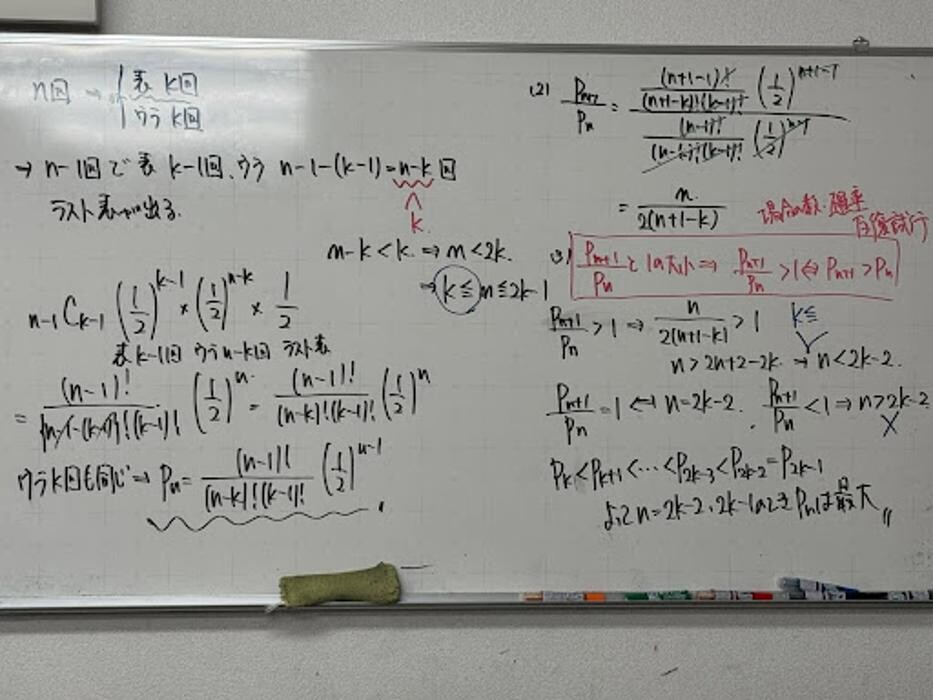 n回 → 表 k回
ウラ k回
→ n-1回で 表 k-1回、ウラ n-1-(k-1)=n-k回
k
ラスト表が出る.
n-k<k ⇒ n<2k.
⇒ k≦n≦2k-1
n-1Ck-1 (1/2)^k-1 × (1/2)^n-k × 1/2
表k-1回 ウラn-k回 ラスト表
= (n-1)!/(n-1-(k-1))!(k-1)! (1/2)^n = (n-1)!/(n-k)!(k-1)! (1/2)^n
ウラk回も同じ→ Pn= (n-1)!/(n-k)!(k-1)! (1/2)^n-1
(2) Pn+1/Pn = (n+1-1)!/(n+1-k)!(k-1)! (1/2)^n+1-1 / (n-1)!/(n-k)!(k-1)! (1/2)^n-1
= n/2(n+1-k)
場合の数・確率
反復試行
(3) Pn+1/Pn と1の大小⇒ Pn+1/Pn >1⇔Pn+1>Pn
Pn+1/Pn >1 ⇒ n/2(n+1-k) >1 k≦
n>2n+2-2k. → n<2k-2.
Pn+1/Pn =1 ⇔ n=2k-2. Pn+1/Pn <1 ⇒ n>2k-2
×
Pk<Pk+1<…<P2k-3<P2k-2=P2k-1
よってn=2k-2,2k-1のときPnは最大〃